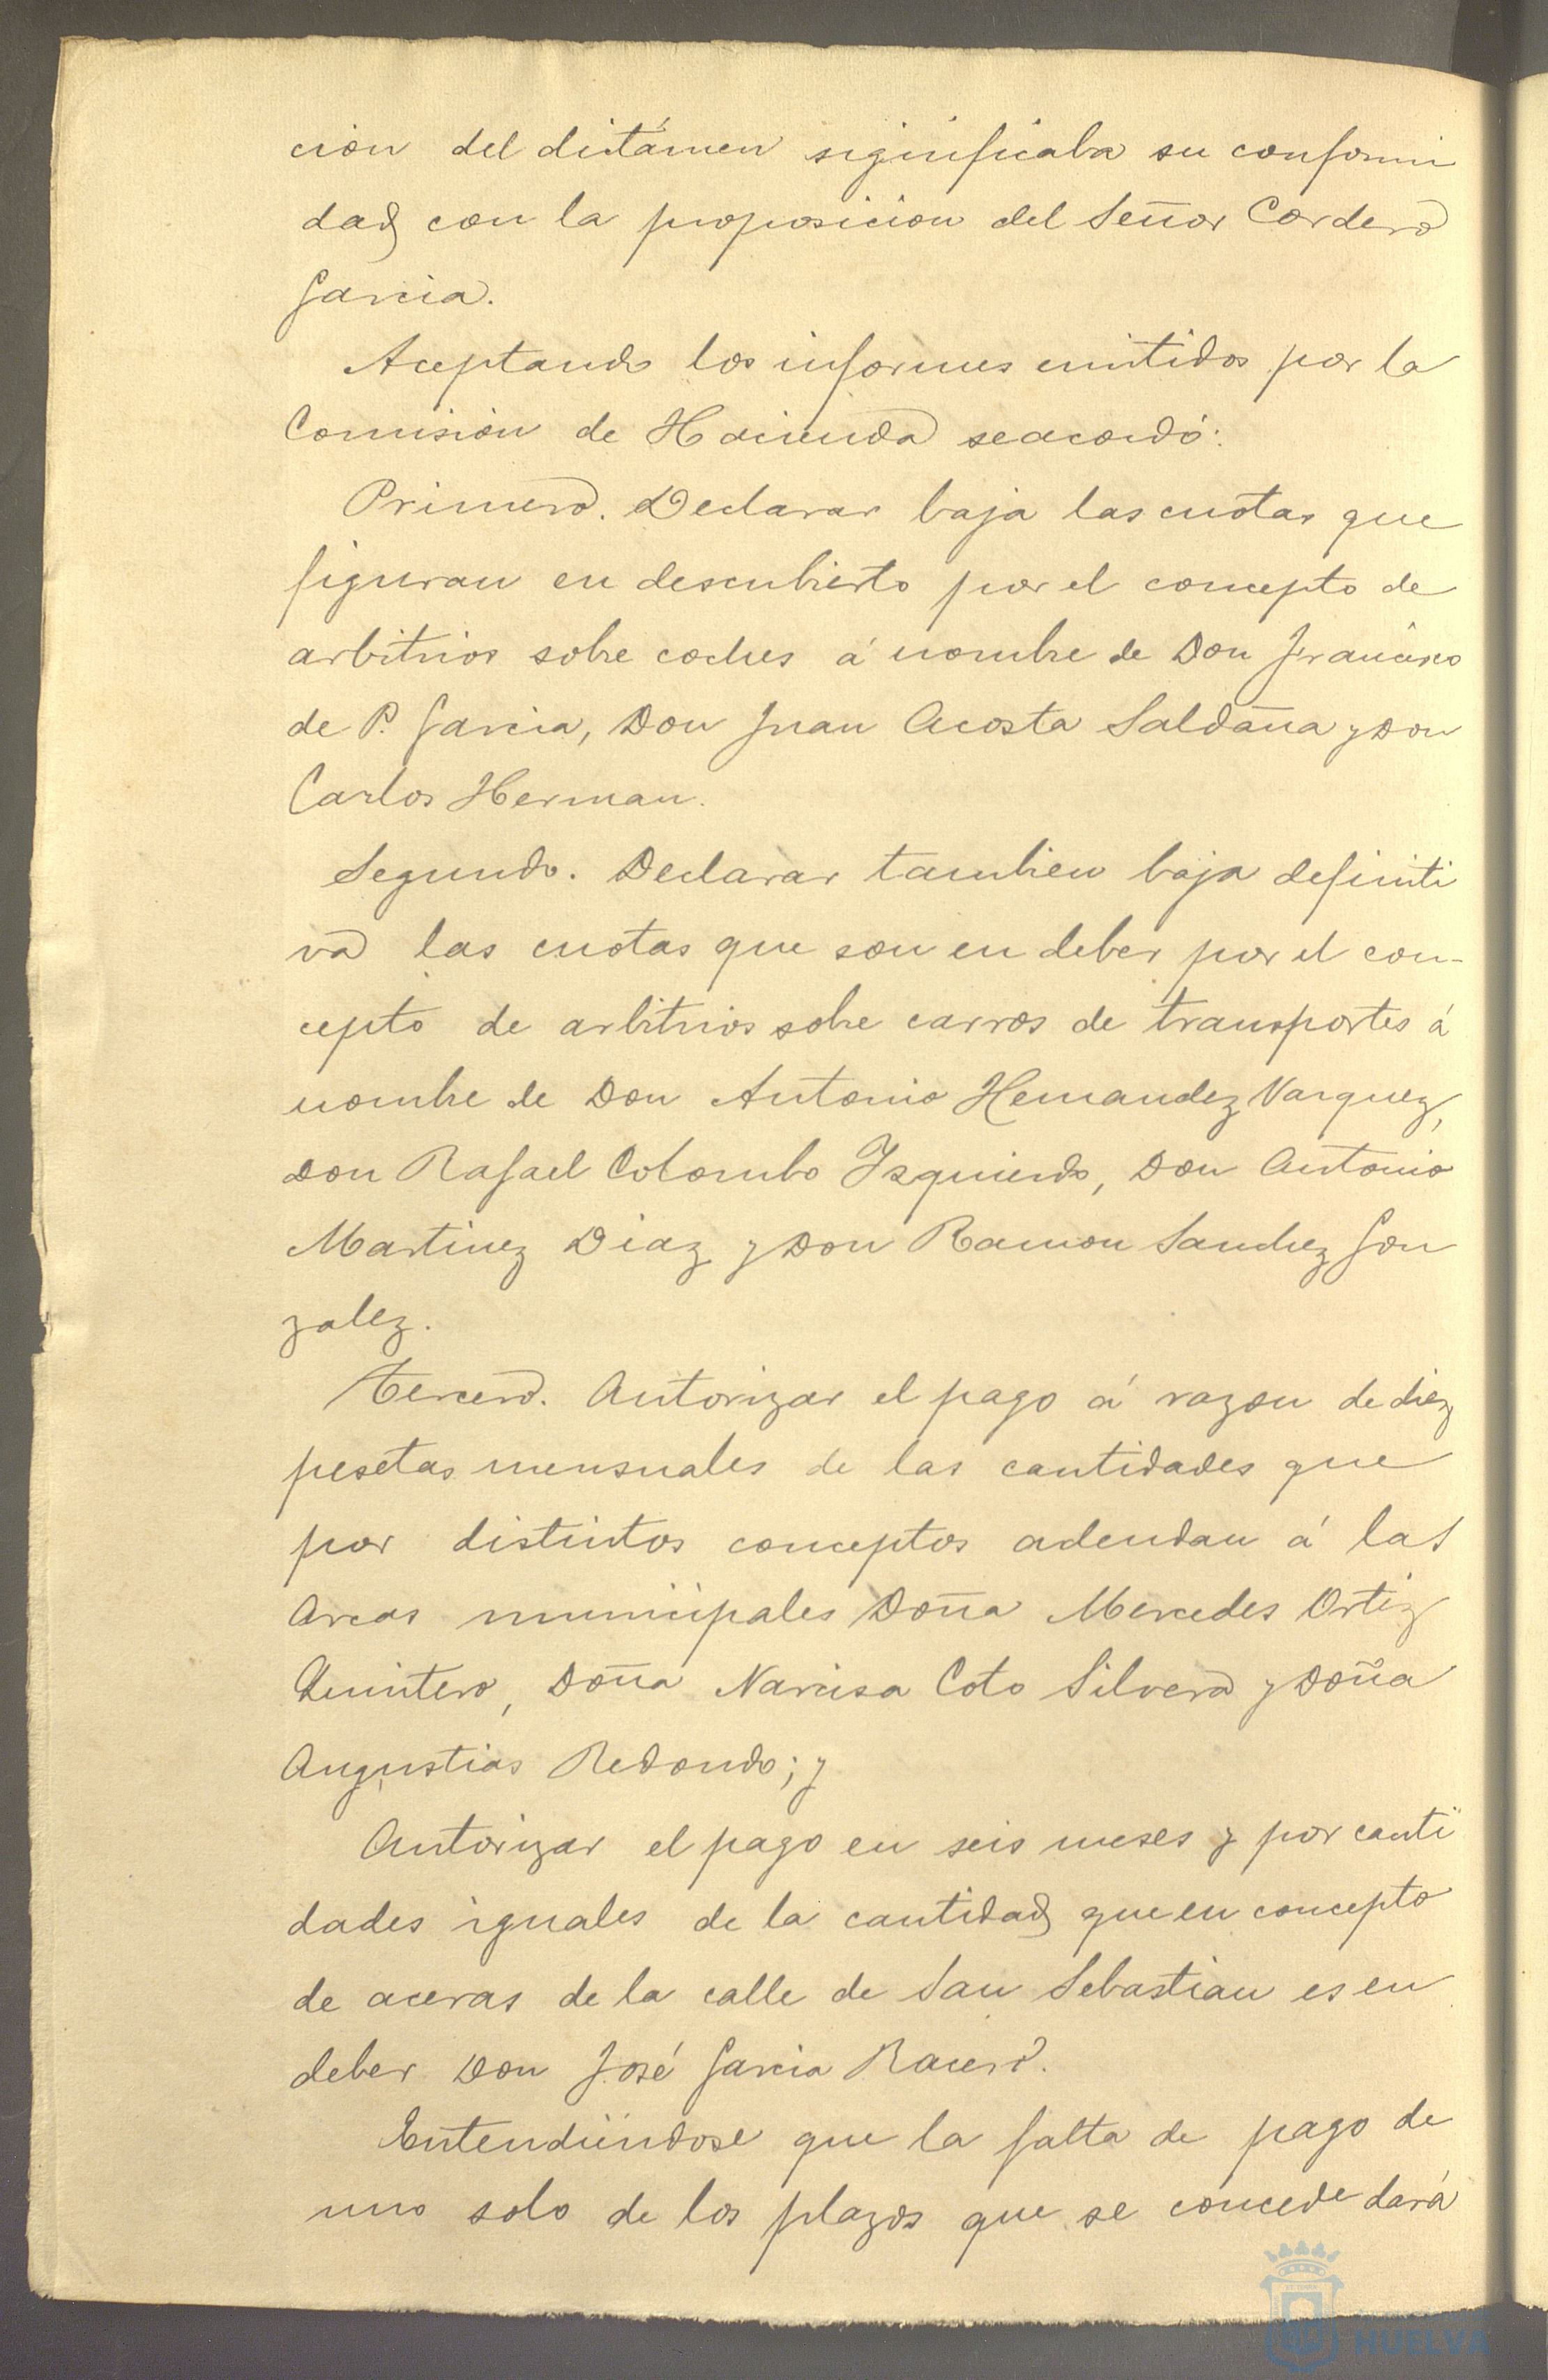 cion del dictámen siginificaba su conformi
dad con la proposicion del Señor Cordero
Garcia.
Aceptando los informes emitidos por la
Comisión de Hacienda se acordó:
Primero. Declarar baja las cuotas que
figuran en descubierto por el concepto de
arbitrios sobre coches á nombre de Don Francisco
de P. Garcia, Don Juan Acosta Saldaña y Don
Carlos Herman.
Segundo. Declarar tambien baja definiti
va las cuotas que son en deber por el con-
cepto de arbitrios sobre carros de transportes á
nombre de Don Antonio Hernandez Varquez,
Don Rafael Colombo Izquierdo, Don Antonio
Martinez Diaz y Don Ramon Sanchez Gon
zalez.
Tercero. Autorizar el pago á razon de diez
pesetas mensuales de las cantidades que
por distintos conceptos adeudan á las
Arcas municipales Doña Mercedes Ortiz
Quintero, Doña Narcisa Coto Silvera y Doña
Angustias Redondo; y
Autorizar el pago en seis meses y por canti
dades iguales de la cantidad que en concepto
de aceras de la calle de San Sebastian es en
deber Don José Garcia Racero.
Entendiéndose que la falta de pago de
uno solo de los plazos que se concede dará
HUELVA